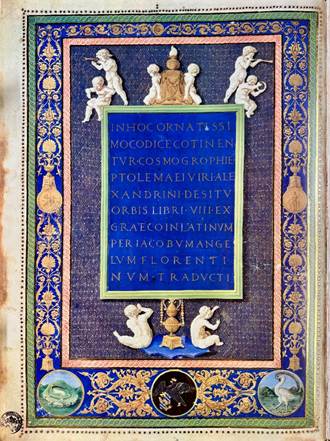 INHOCORNATISSI
MOCODICECOTINEN
TVRCOSMOGROPHIE
PTOLEMAEIVIRIALE
XANDRINIDESITV
ORBIS LIBRI·VIII·EX
GRAECOINLATINVM
PERIACOBVMANGE
LVMFLORENTI
NVM·TRADVCTI